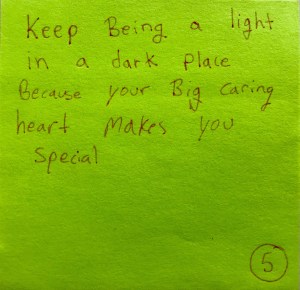 Keep Being a light
in a dark place
Because your Big caring
heart Makes you
special
5